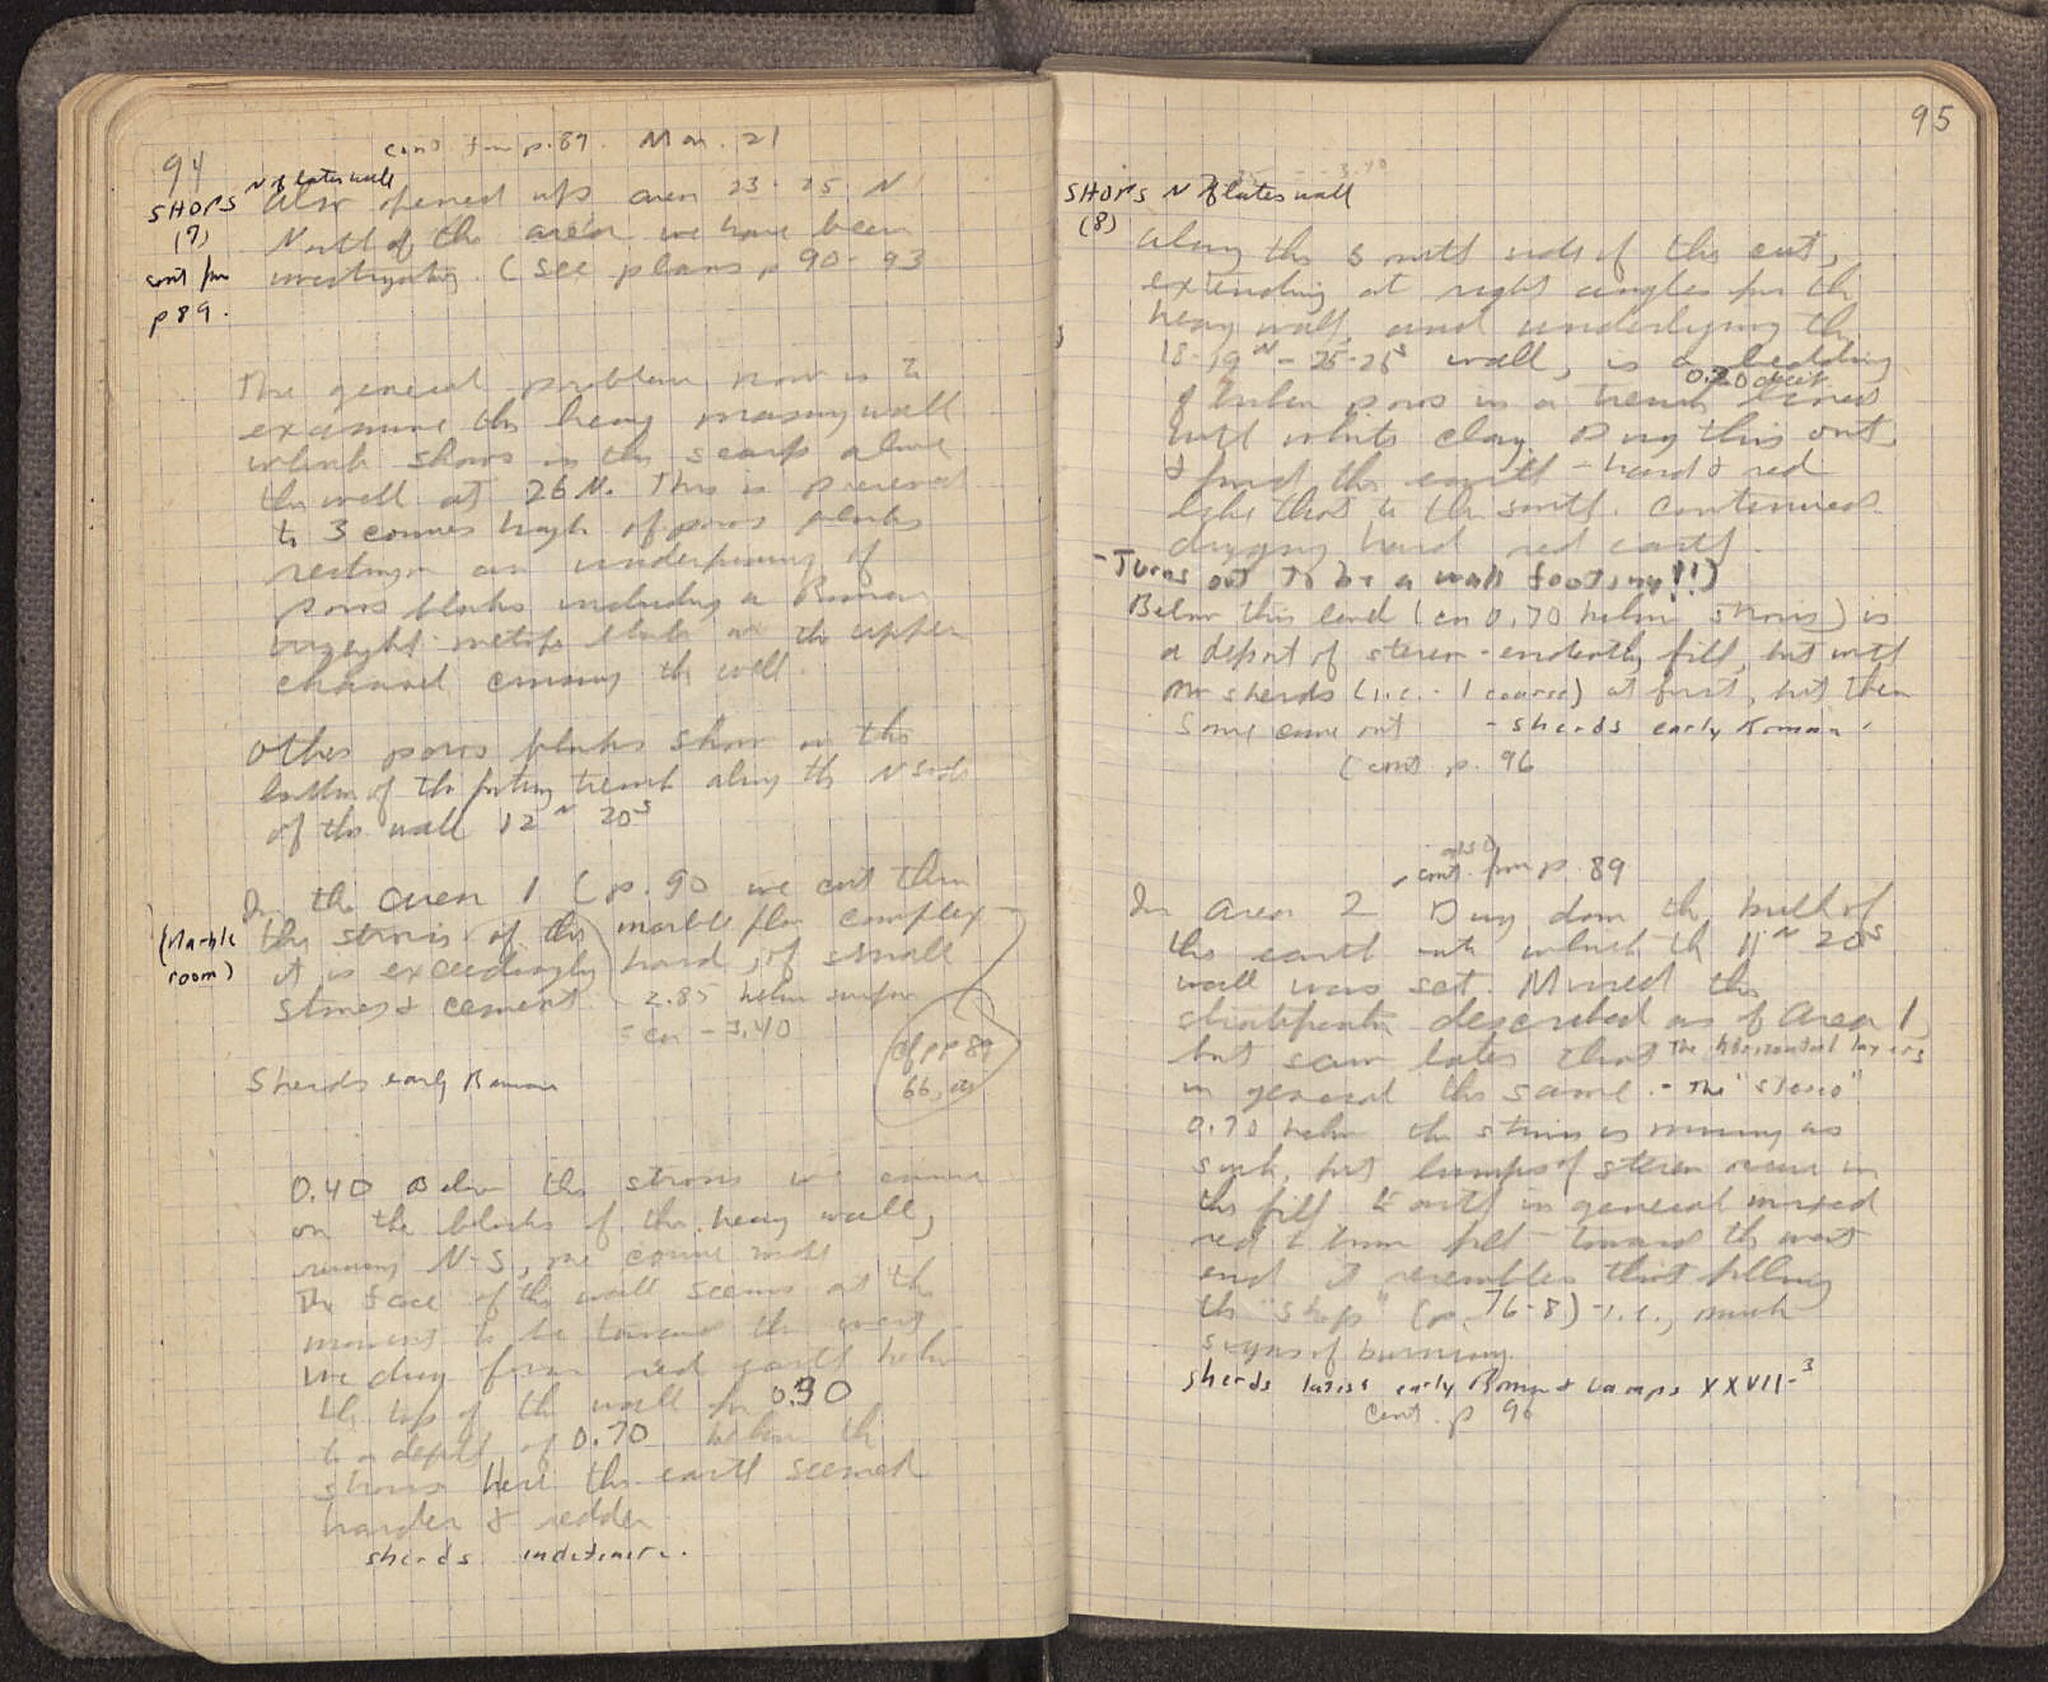 94
cont from p. 89. Mar. 21
N of later wall
SHOPS
(7)
cont from
p 89.
Also opened up area 23-25 N
North of the area we have been
investigating. (See plans p 90-93
The general problem now is to
examine the heavy masonry wall
which shows in the scarp above
the wall at 26 N. This is preserved
to 3 courses high of poros blocks
resting on an underpinning of
poros blocks including a Roman
metope block in the upper
channel crossing the wall.
Other poros blocks show in the
bottom of the footing trench along the N side
of the wall 12 N 20 S
(Marble
room)
In the area 1 (p. 90 we cut thru
the strosis of the marble floor complex
it is exceedingly hard, of small
stones & cement - 2.85 below surface
= ca - 3.40
(cf pp 89
66,
Sherds early Roman
0.40 Below the strosis we came
on the blocks of the heavy wall,
running N-S, one course wide
The face of the wall seems at the
moment to be toward the west
We dug from red earth below
the top of the wall for 0.30
to a depth of 0.70 below the
strosis here the earth seemed
harder & redder
sherds indeterm.
95
SHOPS N of later wall
(8)
Along the south side of this cut,
extending at right angles from the
heavy wall, and underlying the
18-19 N - 25-25 S wall, is a bedding
0.20 deep
of broken poros in a trench lined
with white clay. Dug this out,
& found the earth - hard & red
like that to the south. Continued
digging hard red earth.
- Turns out to be a wall footing!!)
Below this level (ca 0.70 below strosis) is
a deposit of stereo - evidently fill, but with
no sherds (i.e. - 1 coarse) at first, but then
some came out - sherds early Roman.
(cont p. 96
also
cont. from p. 89
In area 2 Dug down the bulk of
the earth into which the 11 N 20 S
wall was set. Missed the
stratification described as of Area 1,
but saw later that the horizontal layers
in general the same. - The "stereo"
0.70 below the strosis is missing as
such, but lumps of stereo occur in
the fill. Earth in general mixed
red & brown fill - toward the west
end it resembles that filling
the "shops" (p. 76-8) - i.e., much
signs of burning.
sherds latest early Roman & Lamps XXVII - 3
Cont. p 96